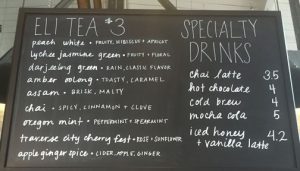 ELI TEA $3
peach white • FRUITY, HIBISCUS + APRICOT
lychee jasmine green • FRUITY + FLORAL
darjeeling green • RAIN, CLASSIC FLAVOR
amber oolong • TOASTY, CARAMEL
assam • BRISK, MALTY
chai • SPICY, CINNAMON + CLOVE
oregon mint • PEPPERMINT + SPEARMINT
traverse city cherry fest • ROSE + SUNFLOWER
apple ginger spice • CIDER, APPLE, GINGER
SPECIALTY
DRINKS
chai latte 3.5
hot chocolate 4
cold brew 4
mocha cola 5
iced honey
+ vanilla latte 4.2